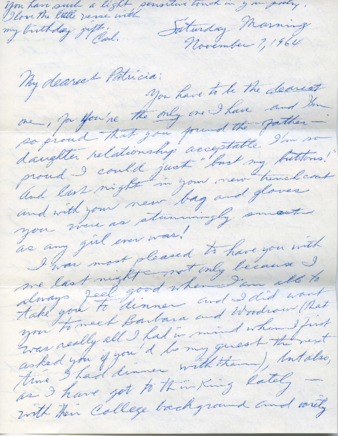 You have such a light, sensitive touch in your poetry.
I love the little verse with
my birthday gift.
Saturday Morning
November 7, 1964
My dearest Patricia:
You have to be the dearest
one, for you're the only one I have and I'm
so proud that you found the father-
daughter relationship acceptable I'm so
proud I could just "bust my buttons!"
And last night in your new trench coat
and with your new bag and gloves
you were as stunningly smart
as any girl ever was!
I was most pleased to have you with
me last night not only because I
always feel good when I'm able to
take you to dinner and I did want
you to meet Barbara and Woodrow (that
was really all I had in mind when I first
asked you if you'd be my guest the next
time I had dinner with them), but also,
as I have got to thinking lately —
with their College background and